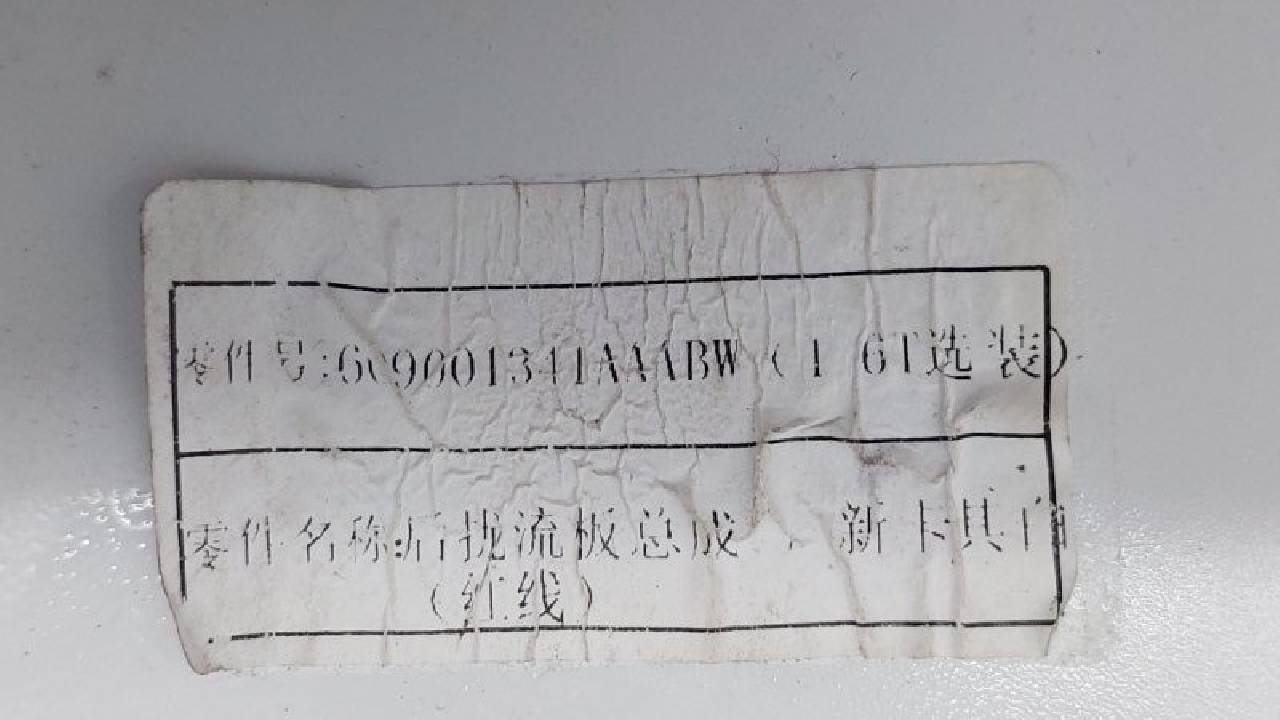 零件号:609001341AAABW（1 6T选装）
零件名称:后扰流板总成 新卡其白
（红线）